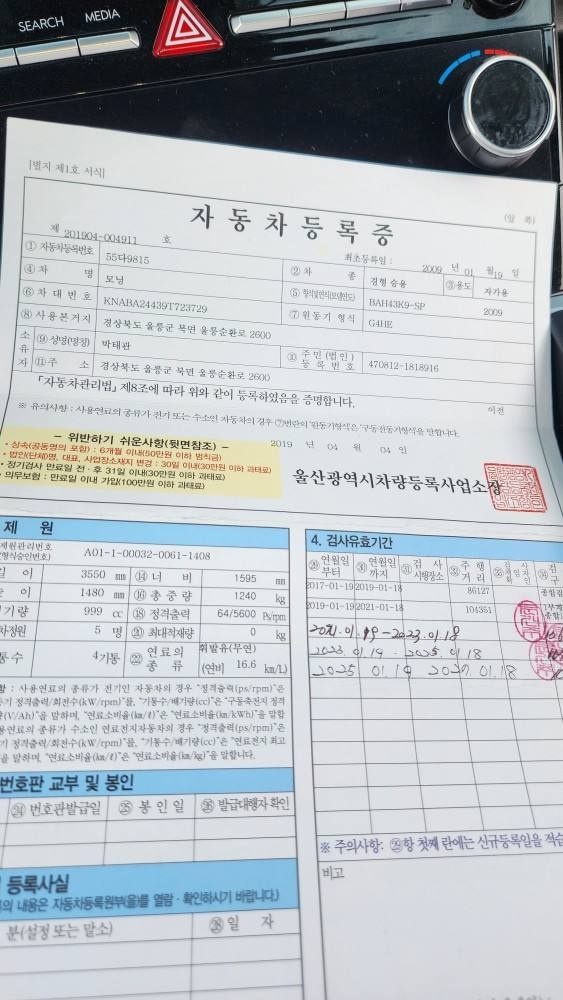 SEARCH MEDIA
[별지 제1호 서식]
(앞 쪽)
자동차등록증
제 201904-004911 호
최초등록일 : 2009 년 01 월 19 일
① 자동차등록번호 55다9815 ② 차 종 경형 승용 ③용도 자가용
④ 차 명 모닝 ⑤ 형식및연식(모델연도) BAH43K9-SP 2009
⑥ 차대번호 KNABA24439T723729 ⑦ 원동기 형식 G4HE
⑧ 사용본거지 경상북도 울릉군 북면 울릉순환로 2600
소유자 ⑨성명(명칭) 박태관 ⑩ 주민(법인)등록번호 470812-1818916
⑪주 소 경상북도 울릉군 북면 울릉순환로 2600
「자동차관리법」 제8조에 따라 위와 같이 등록하였음을 증명합니다.
이전
※ 유의사항 : 사용연료의 종류가 전기 또는 수소인 자동차의 경우 ⑦번란의 '원동기형식'은 '구동전동기형식'을 말합니다.
2019 년 04 월 04 일
울산광역시차량등록사업소장
- 위반하기 쉬운사항(뒷면참조) -
• 상속(공동명의 포함) : 6개월 이내(50만원 이하 범칙금)
• 법인(단체)명, 대표, 사업장소재지 변경 : 30일 이내(30만원 이하 과태료)
• 정기검사 만료일 전·후 31일 이내(30만원 이하 과태료)
• 의무보험 : 만료일 이내 가입(100만원 이하 과태료)
제 원
제원관리번호
(형식승인번호) A01-1-00032-0061-1408
이 3550 mm ⑭ 너 비 1595 mm
이 1480 mm ⑯ 총 중 량 1240 kg
기량 999 cc ⑱ 정격출력 64/5600 Ps/rpm
차정원 5 명 ⑳ 최대적재량 0 kg
통수 4기통 ㉒ 연료의 종류 휘발유(무연) (연비) 16.6 km/L)
항 : 사용연료의 종류가 전기인 자동차의 경우 "정격출력(ps/rpm)"은
기 정격출력/회전수(kW/rpm)"를, "기통수/배기량(cc)"은 "구동축전지 정격
(V/Ah)"을 말하며, "연료소비율(km/ℓ)"은 "연료소비율(km/kWh)"을 말합
용연료의 종류가 수소인 연료전지자동차의 경우 "정격출력(ps/rpm)"은
기 정격출력/회전수(kW/rpm)"를, "기통수/배기량(cc)"은 "연료전지 최고
을 말하며, "연료소비율(km/ℓ)"은 "연료소비율(km/kg)"을 말합니다.
번호판 교부 및 봉인
㉔ 번호판발급일 ㉕ 봉 인 일 ㉖ 발급대행자확인
등록사실
의 내용은 자동차등록원부(을)를 열람·확인하시기 바랍니다.)
분(설정 또는 말소) ㉘ 일 자
4. 검사유효기간
㉙ 연월일부터 ㉚ 연월일까지 ㉛ 검 사 시행장소 ㉜ 주 행 거 리
2017-01-19 2019-01-18 86127 종합검
2019-01-19 2021-01-18 104351
2021. 01. 19 - 2023. 01. 18
2023. 01. 19 - 2025. 01. 18
2025 01. 19 2027. 01. 18
※ 주의사항: ㉙항 첫째 란에는 신규등록일을 적습
비고